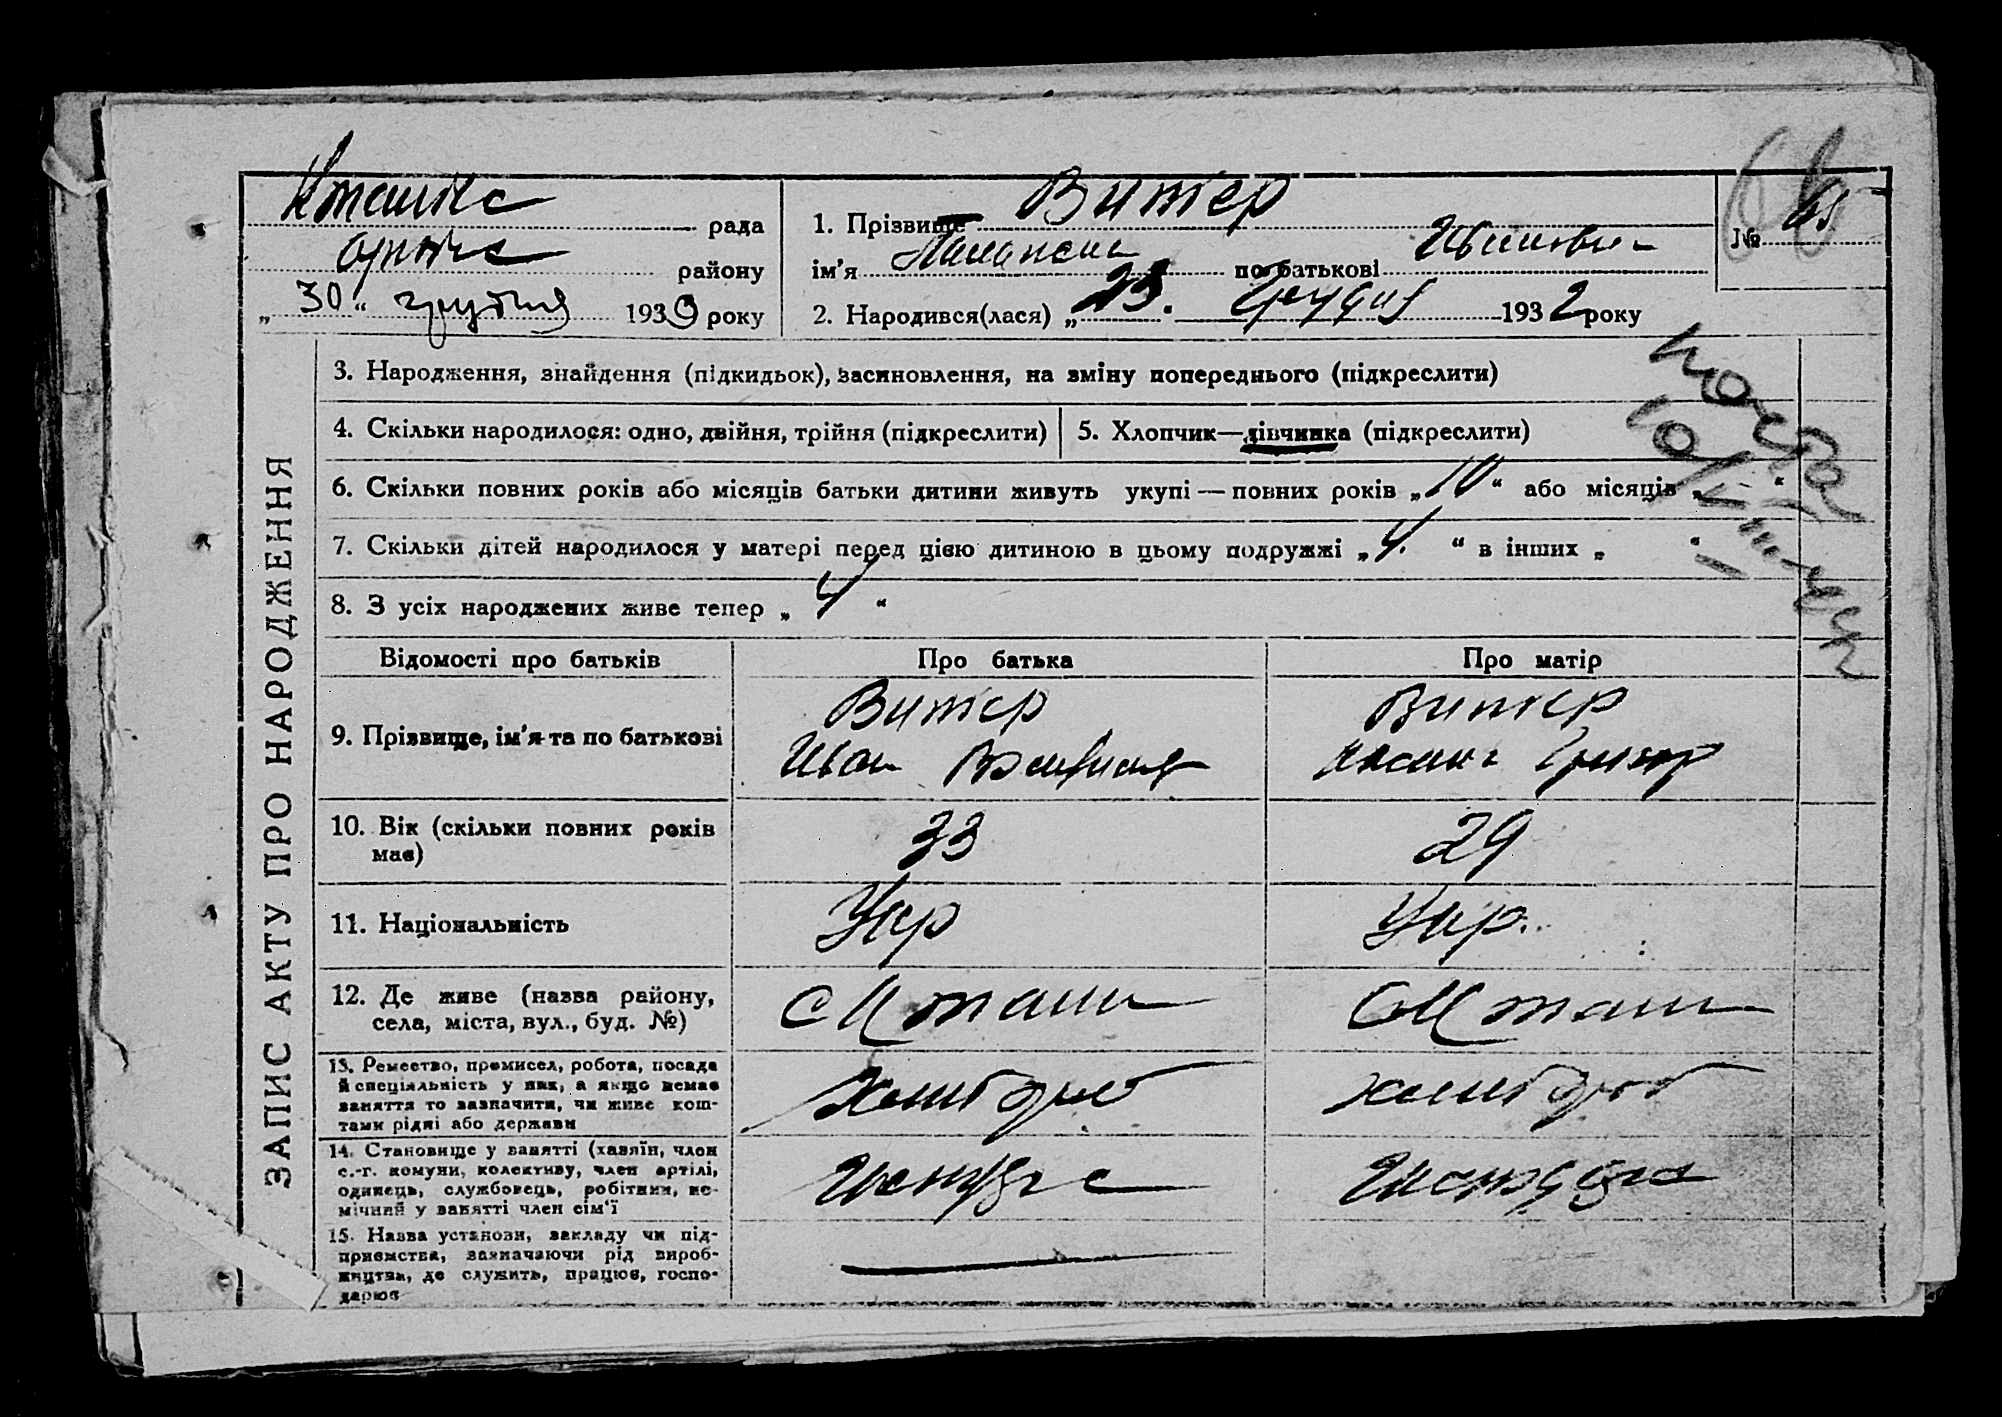 рада
району
„ 30 “ грудня 1933 року
1. Прізвище Витер
ім’я по батькові
2. Народився(лася) „ 23. Грудня 1932 року
№ 65
ЗАПИС АКТУ ПРО НАРОДЖЕННЯ
3. Народження, знайдення (підкидьок), засиновлення, на зміну попереднього (підкреслити)
4. Скільки народилося: одно, двійня, трійня (підкреслити)
5. Хлопчик—дівчинка (підкреслити)
6. Скільки повних років або місяців батьки дитини живуть укупі — повних років „ 10 “ або місяців „ “
7. Скільки дітей народилося у матері перед цією дитиною в цьому подружжі „ 4. “ в інших „ “
8. З усіх народжених живе тепер „ 4 “
Відомості про батьків
Про батька
Про матір
9. Прізвище, ім’я та по батькові
Витер
Иван
Витер
10. Вік (скільки повних років
має)
33
29
11. Національність
Укр
Укр.
12. Де живе (назва району,
села, міста, вул., буд. №)
13. Ремество, промисел, робота, посада
й спеціяльність у них, а якщо немає
заняття то зазначити, чи живе кош-
тами рідні або держави
14. Становище у занятті (хазяїн, член
с.-г. комуни, колективу, член артілі,
одинець, службовець, робітник, не-
мічний у занятті член сім’ї
15. Назва установи, закладу чи під-
приємства, зазначаючи рід вироб-
ництва, де служить, працює, госпо-
дарює